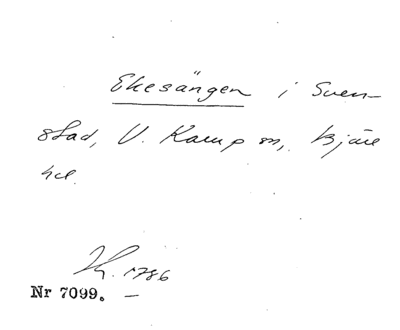 Ekesängen i Sven-
stad, V. Karup sn, Bjäre
hd.
Kr. 1786
Nr 7099. —